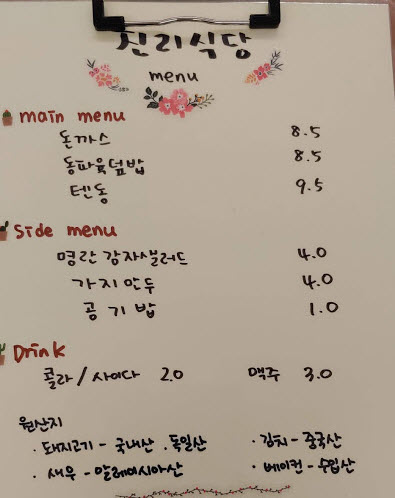 진리식당
menu
main menu
돈까스 8.5
동파육덮밥 8.5
텐동 9.5
Side menu
명란감자샐러드 4.0
가지만두 4.0
공기밥 1.0
Drink
콜라/사이다 2.0 맥주 3.0
원산지
· 돼지고기 - 국내산 . 독일산 · 김치 - 중국산
· 새우 - 말레이시아산 · 베이컨 - 수입산